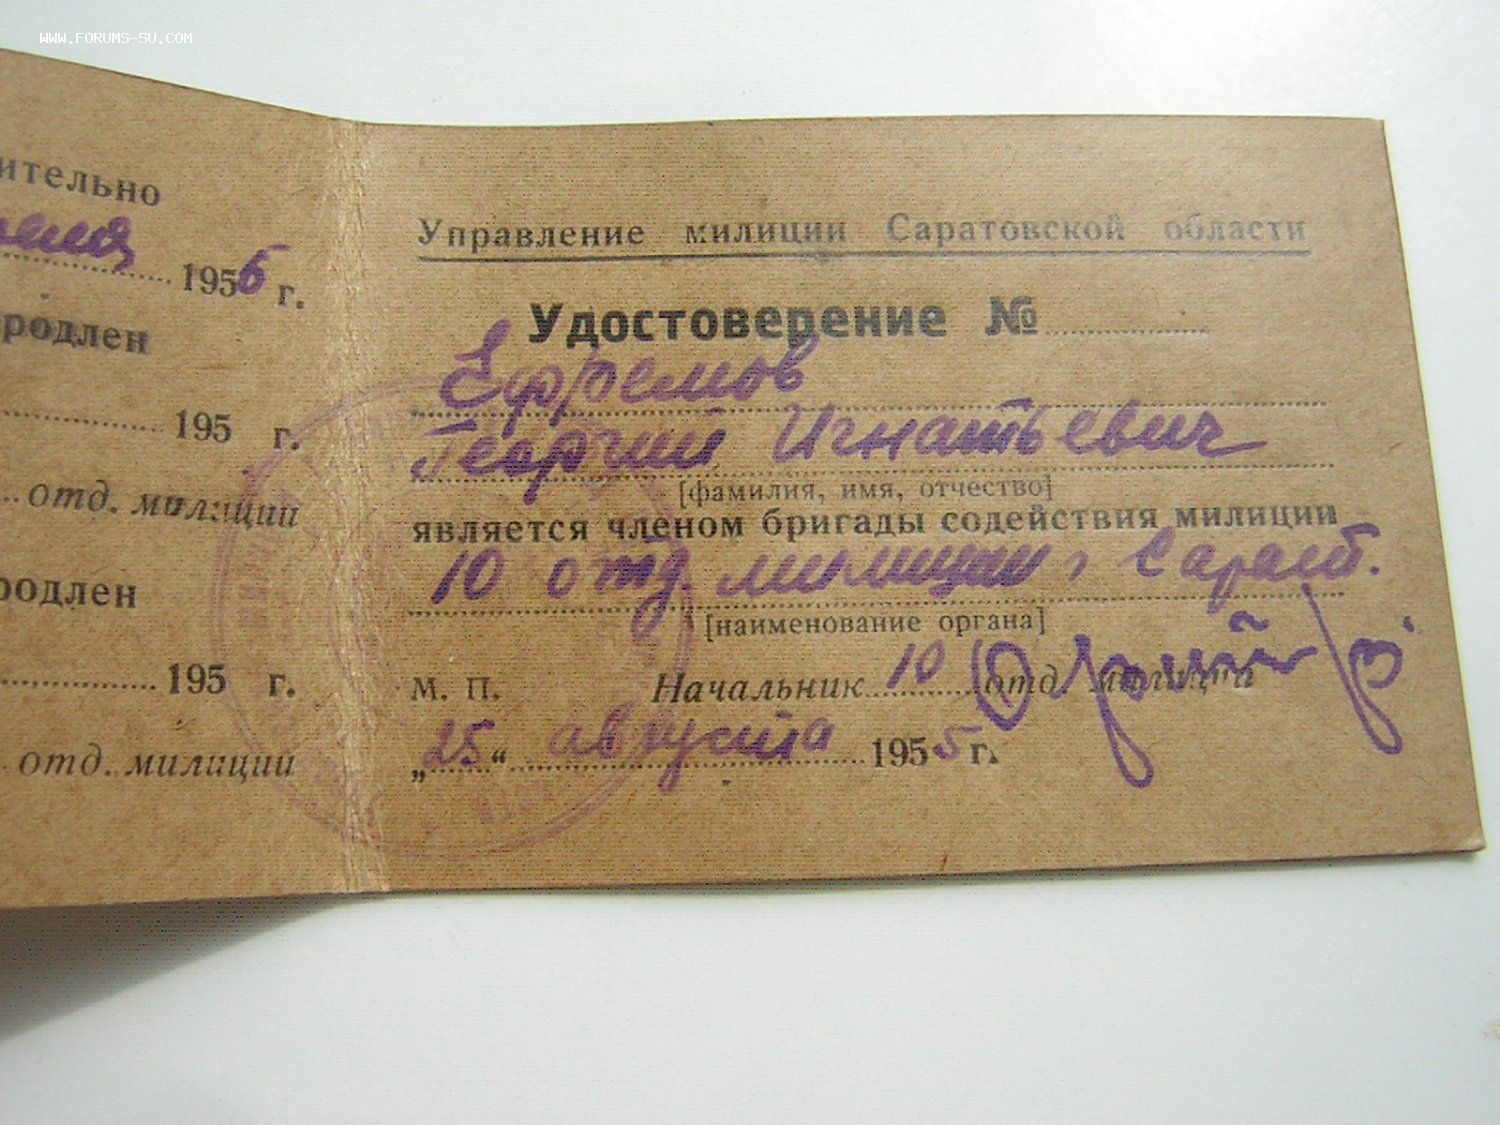 WWW.FORUMS-SU.COM
ительно
1956 г.
родлен
195 г.
отд. милиции
родлен
195 г.
отд. милиции
Управление милиции Саратовской области
Удостоверение №
Ефремов
Георгий Игнатьевич
[фамилия, имя, отчество]
является членом бригады содействия милиции
10 отд. милиции г. Сарат.
[наименование органа]
М. П. Начальник 10 отд. милиции
„25“ августа 1955 г.